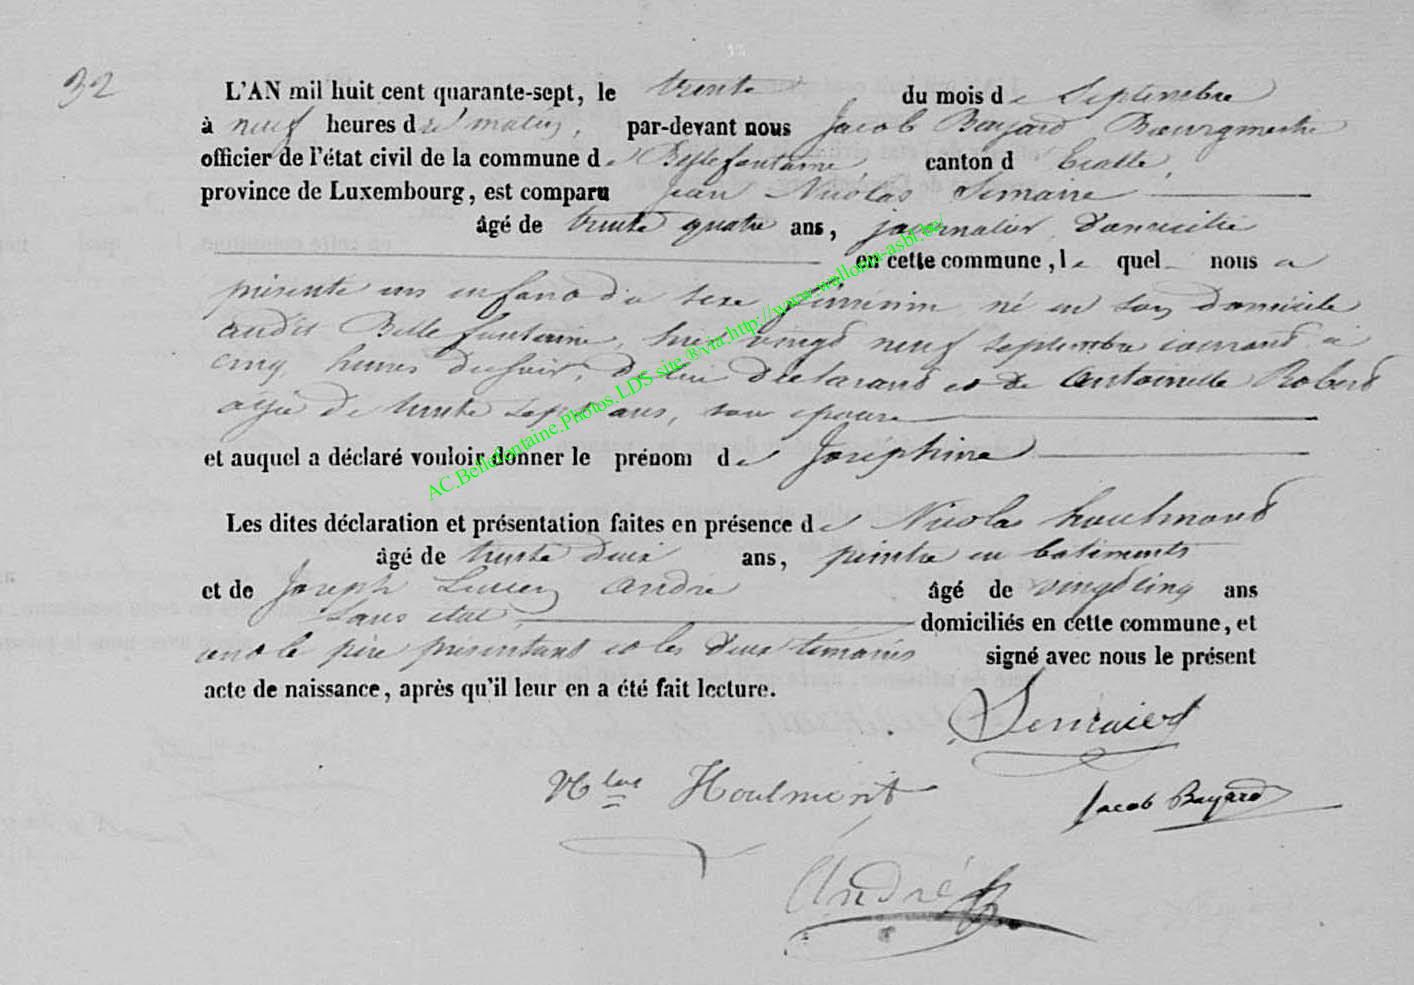 32
L'AN mil huit cent quarante-sept, le trente du mois de Septembre
à neuf heures du matin, par-devant nous Jacob Bayard Bourgmestre
officier de l'état civil de la commune de Bellefontaine canton d'Etalle,
province de Luxembourg, est comparu Jean Nicolas Semaire
âgé de trente quatre ans, journalier, domicilié
en cette commune, le quel nous a
présenté un enfand du sexe féminin né en son domicile
audit Bellefontaine, hier vingd neuf septembre courand à
cinq heures du soir, de lui déclarand et de Antoinette Robert
agée de trente sept ans, son épouse
et auquel a déclaré vouloir donner le prénom de Joséphine
Les dites déclaration et présentation faites en présence de Nicolas houlmond
âgé de trente deux ans, peintre en batiments
et de Joseph Lucien andré âgé de vingd cinq ans
sans état domiciliés en cette commune, et
ond le père présentant et les deux témoins signé avec nous le présent
acte de naissance, après qu'il leur en a été fait lecture.
Nlas Houlmont
Jacob Bayard
André
AC.Bellefontaine.Photos.LDS site.®via.http://www.wallonia-asbl.be/